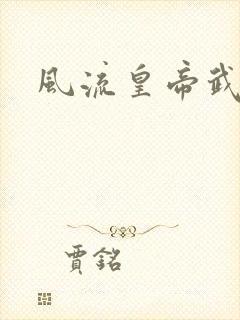 風流皇帝武
賈銘